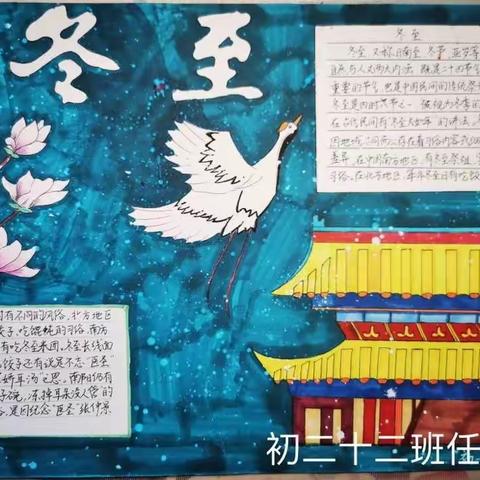 冬至
冬至
冬至 又称日南至、冬节、亚岁等
自然与人文两大内涵 既是二十四节气
重要的节气,也是中国民间的传统祭
冬至是四时八节之一 被视为冬季的
在古代民间有"冬至大如年"的讲法
因地域不同而又存在着习俗内容或细
差异。在中国南方地区,有冬至祭祖、
习俗。在北方地区,每年冬至日有吃饺
有不同的风俗,北方地区
饺子、吃馄饨的习俗,南方
有吃冬至米团、冬至长线面
饺子还有说是不忘"医圣"
娇耳汤"之思。南阳仍有
子碗,冻掉耳朵没人管"的
是因纪念"医圣"张仲景
初二十二班任